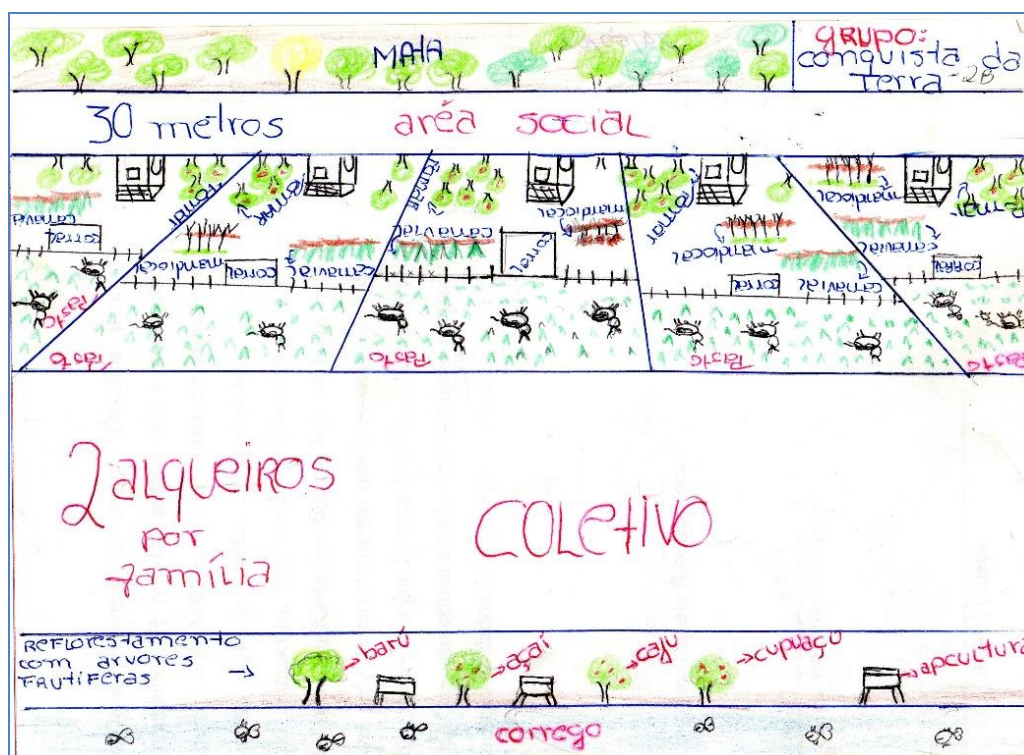 MATA
GRUPO:
conquista da
Terra -2B
30 metros
aréa social
Pomar
canavial
corral
Pasto
Pomar
mandiocal
corral
canavial
Pasto
Pomar
canavial
corral
mandiocal
Pasto
Pomar
mandiocal
corral
canavial
Pasto
mandiocal
Pomar
canavial
corral
Pasto
2 alqueiros
por
família
COLetIVO
REFLOrestamento
com arvores
FRUtiFeras
barú
açaí
caju
cupuaçu
apcultura
corrego